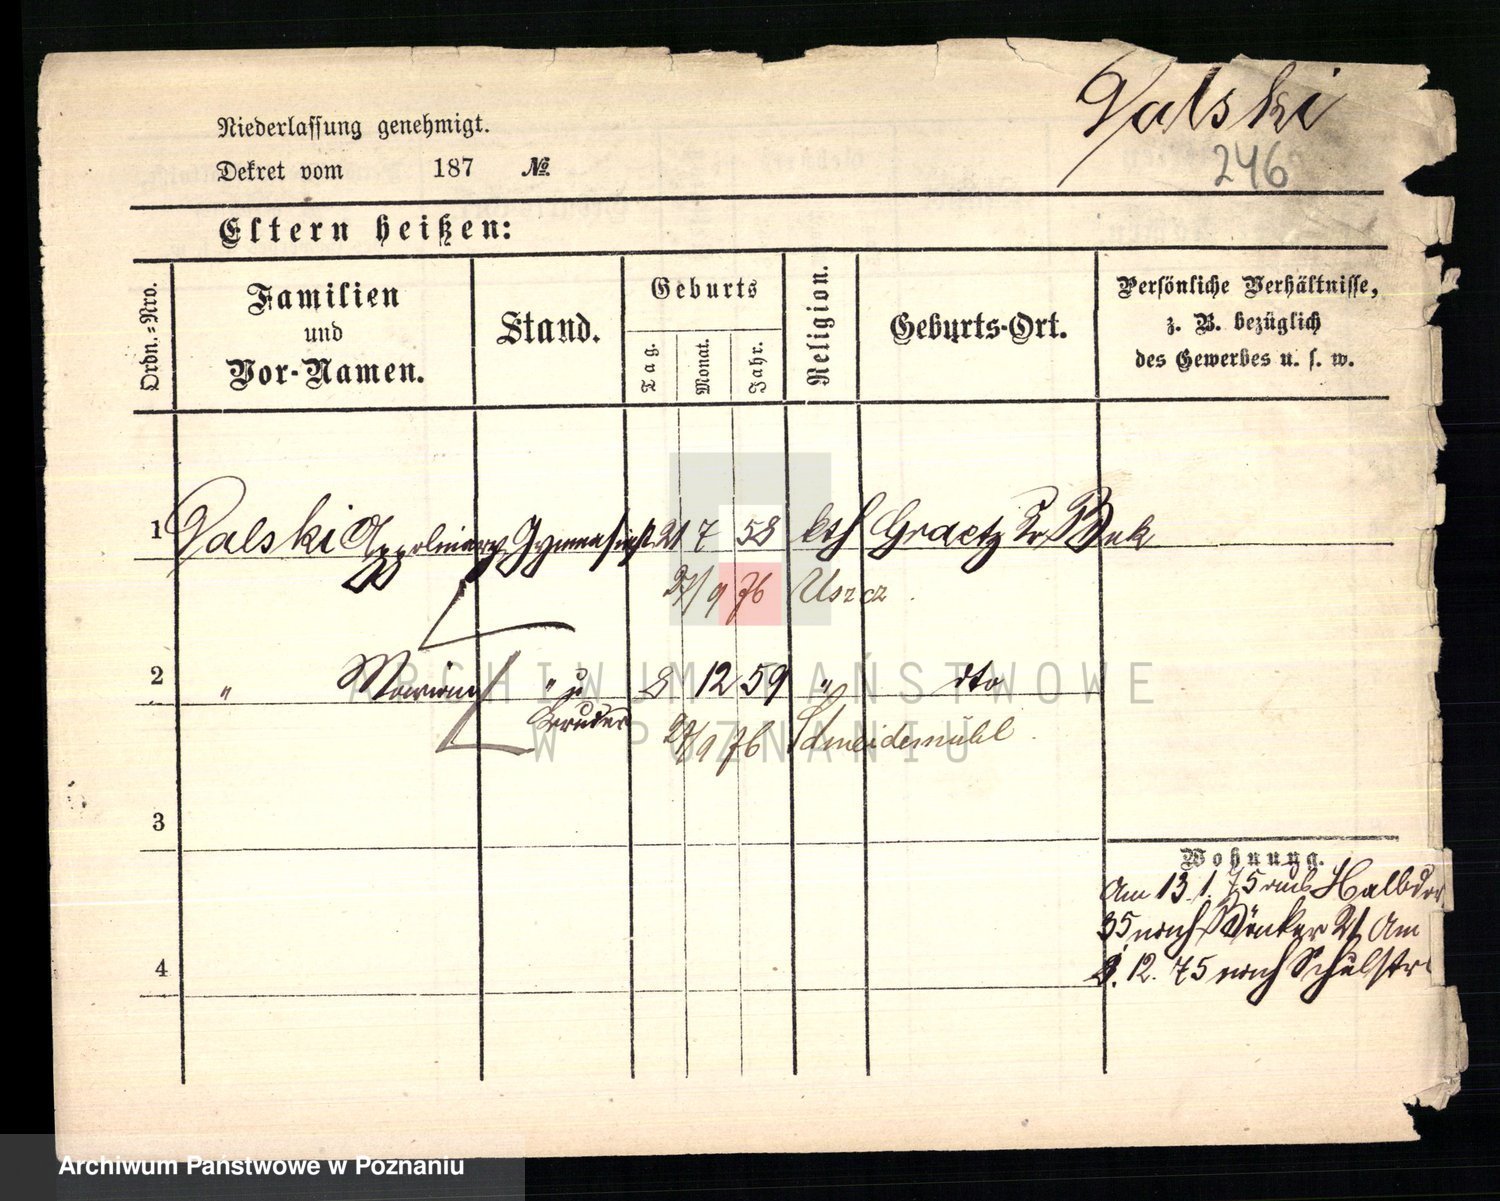 Niederlassung genehmigt.
Dekret vom 187 №
Valski
246
Eltern heißen:
Ordn.-Nro.
Familien
und
Vor-Namen.
Stand.
Geburts
Tag.
Monat.
Jahr.
Religion.
Geburts-Ort.
Persönliche Verhältnisse,
z. B. bezüglich
des Gewerbes u. s. w.
1 Valski Appolinary Gymnasiast 21 7 58 kth Graetz Kr Buk
27/9 76 Uszcz
2 " Marian " u 8 12 59 " dto
Bruder 27/9 76 Schneidemühl
3
Wohnung.
Am 13.1.75 aus Halbdor
35 nach Bäcker 21 Am
12.75 nach Schulstr
4
ARCHIWUM PAŃSTWOWE
W POZNANIU
Archiwum Państwowe w Poznaniu